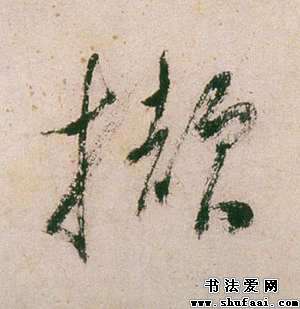 擷
书法爱网
www.shufaai.com